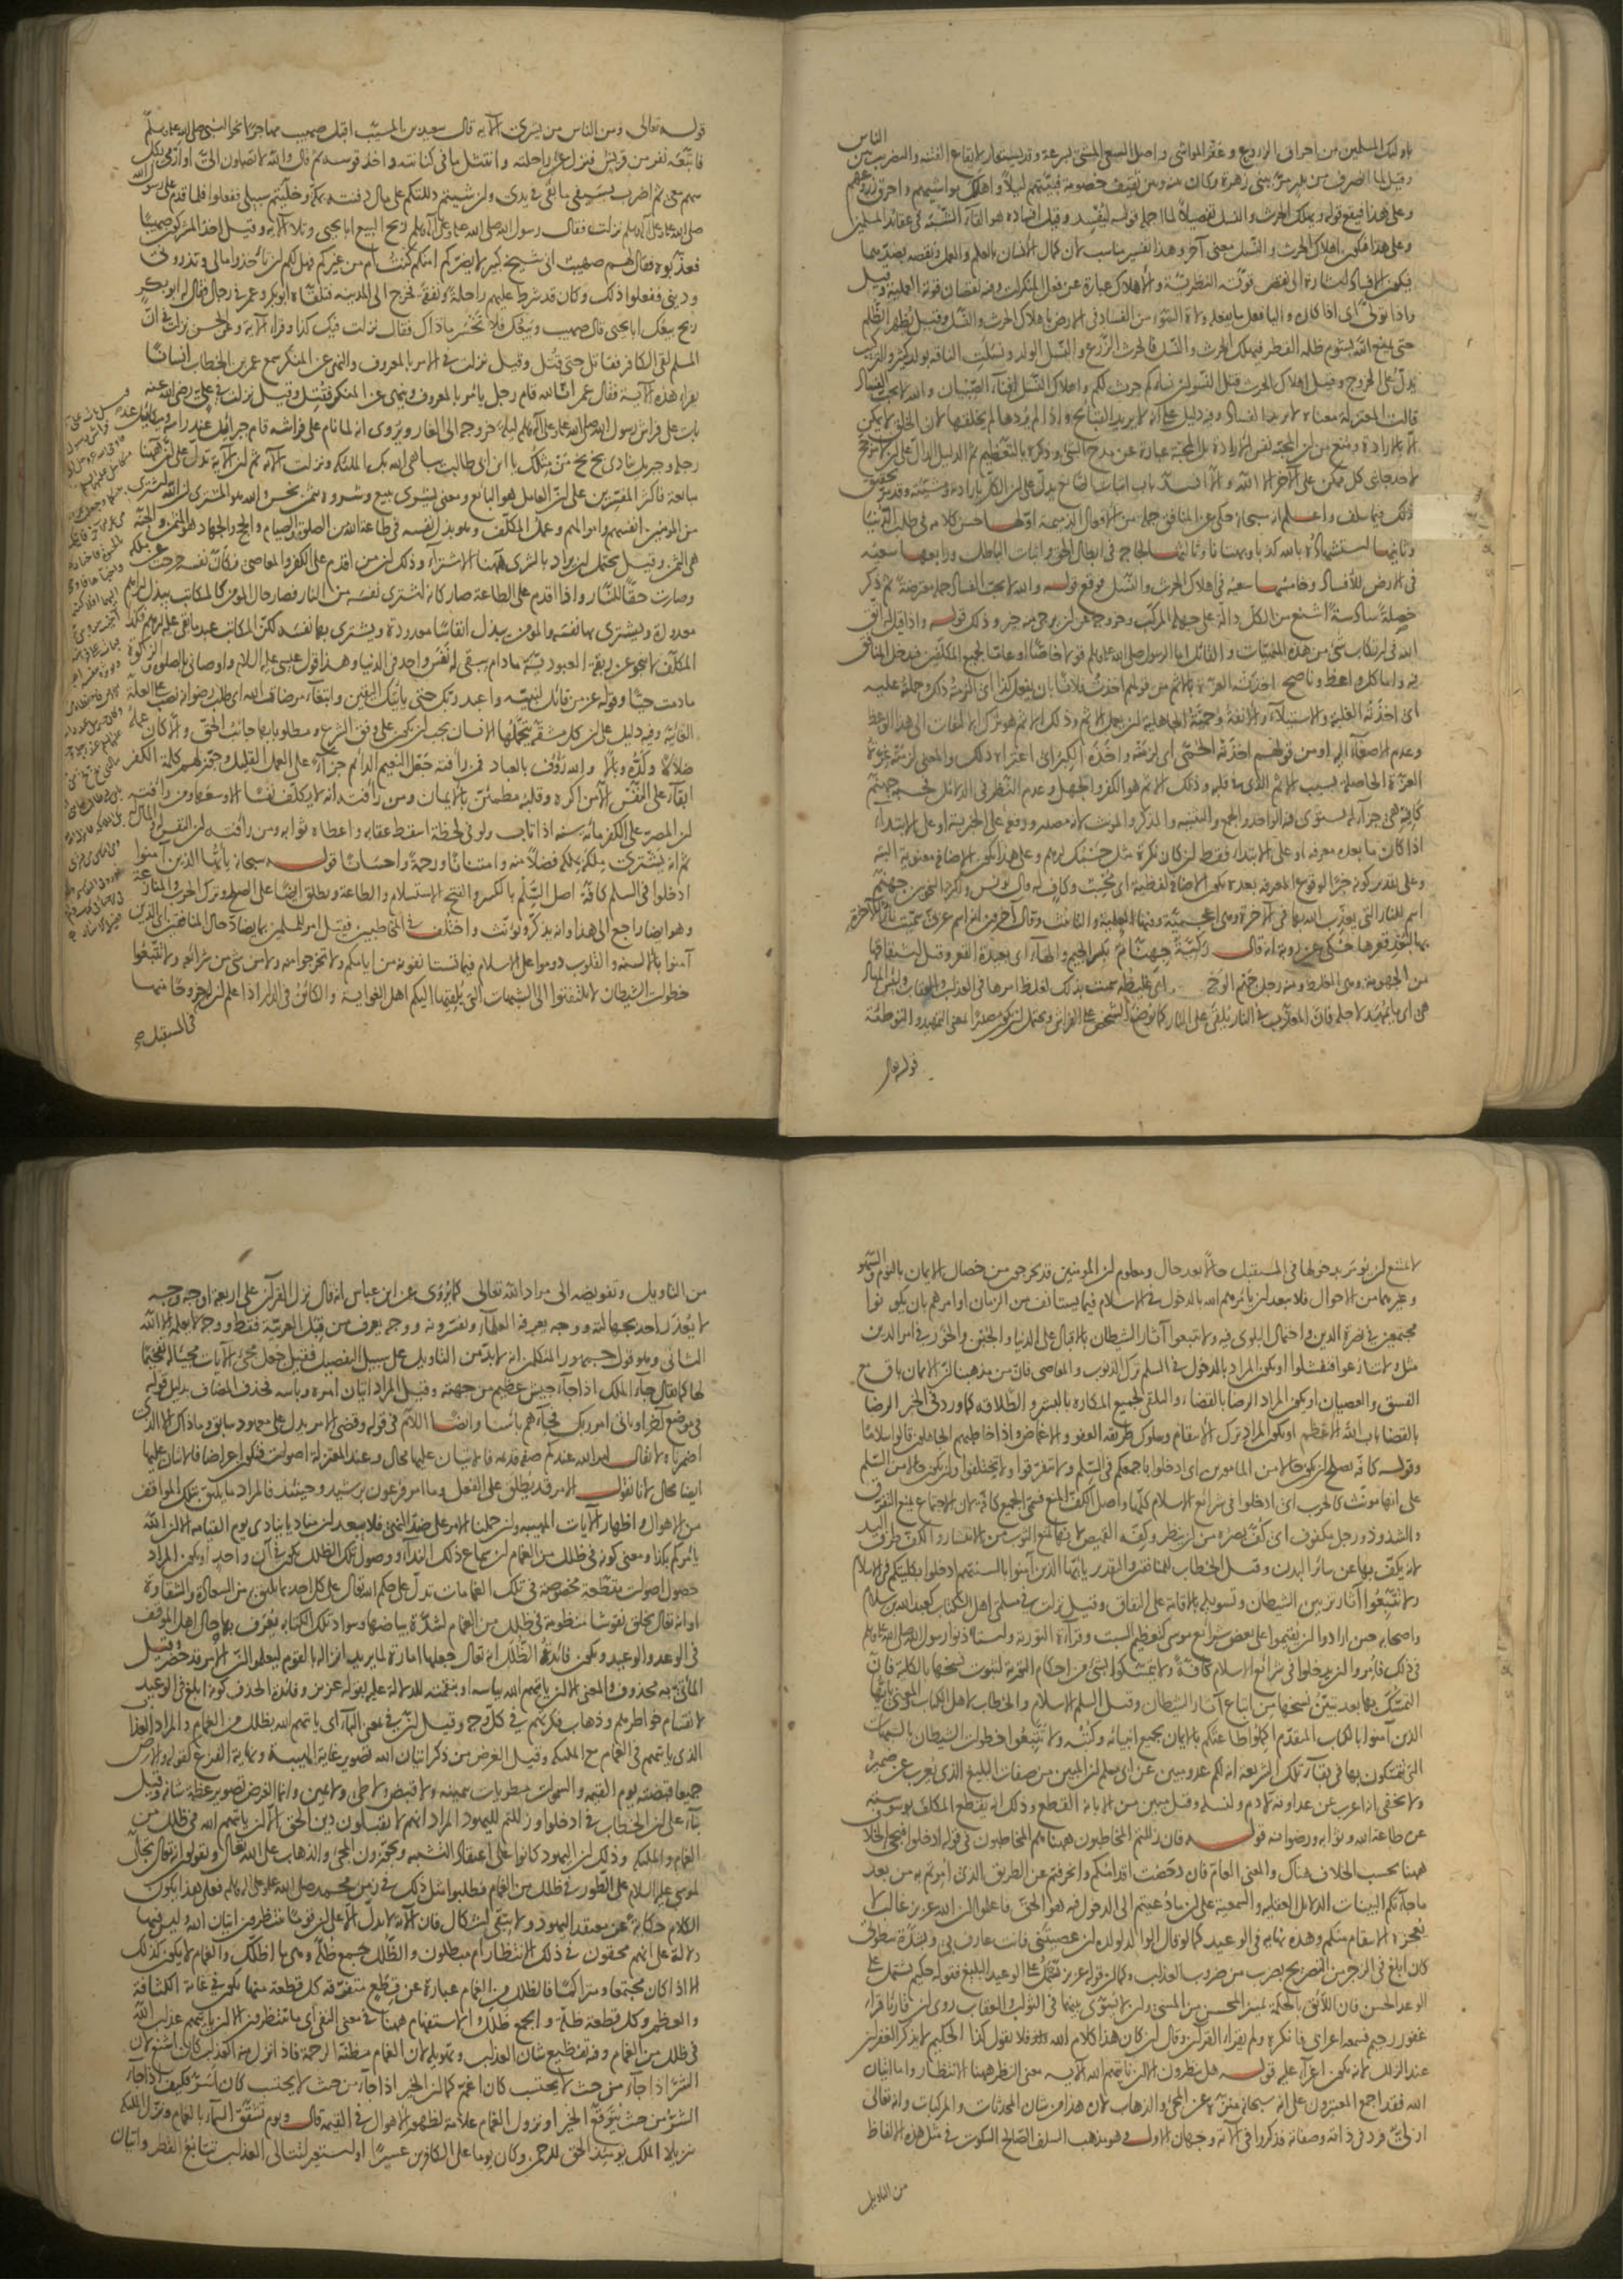 باولئك المسلمين من احراق الزروع وعقر المواشى واصل السعى المشى بسرعة وقد يستعار لايقاع الفتنة والتضريب بين الناس
وقيل لما انصرف من بدر مرّ ببنى زهرة وكان بينه وبين ثقيف خصومة فبيّتهم ليلاً واهلك مواشيهم واحرق زروعهم
وعلى هذا فيقع قوله ويهلك الحرث والنسل تفصيلاً لما اجمله قوله ليفسد وقيل افساده هو القاء الشبه فى عقائد المسلمين
وعلى هذا فيكون اهلاك الحرث والنسل معنى آخر وهذا تفسير مناسب لان كمال الانسان بالعلم والعمل ونقصه بضدّيهما
فيكون الافساد اشارة الى نقض قوته النظرية والاهلاك عبارة عن فعل المنكرات وفيه نقصان قوته العملية وقيل
واذا تولّى اى اذا كان واليا فعل ما يفعله ولاة السوء من الفساد فى الارض باهلاك الحرث والنسل وقيل يظهر الظلم
حتى يمنع الله بشؤم ظلمه القطر فيهلك الحرث والنسل فالحرث الزرع والنسل الولد ونسلت الناقة بولد كثير والتركيب
يدلّ على الخروج وقيل اهلاك الحرث قتل النسوان نساؤكم حرث لكم واهلاك النسل افناء الصبيان والله لا يحب الفساد
قالت المعتزلة معناه لا يريد الفساد وفيه دليل على انه لا يريد القبائح واذا لم يردها لم يخلقها لان الخلق لا يمكن
الّا بالارادة ومنع من ان المحبة نفس الارادة بل المحبة عبارة عن مدح الشئ وذكره بالتعظيم ثم الدليل الدالّ على ان لا مرجح
لاحد جانبى كل ممكن على الآخر الا الله والّا انسدّ باب اثبات الصانع يدلّ على ان الكل بارادته ومشيئته وقد مرّ تحقيق
ذلك فيما سلف واعلم انه سبحانه حكى عن المنافق جملة من الافعال الذميمة اوّلها حسن كلامه فى طلب الدنيا
وثانيها استشهاده بالله كذبا وبهتانا وثالثها لجاجه فى ابطال الحق واثبات الباطل ورابعها سعيه
فى الارض للافساد وخامسها سعيه فى اهلاك الحرث والنسل فوقع قوله والله لا يحب الفساد جملة معترضة ثم ذكر
خصلة سادسة اشنع من الكل دالة على جهله المركب وخروجه عن ان يرجى منه خير وذلك قوله واذا قيل له اتق
الله فى ارتكاب شئ من هذه المنهيات والقائل اما الرسول صلى الله عليه وسلم قولا خاصّا او عامّا لجميع المكلفين فيدخل المنافق
فيه واما كل واعظ وناصح اخذته العزة بالاثم من قولهم اخذت فلانا بان يفعل كذا اى الزمته ذلك وحملته عليه
اى اخذته الغلبة والاستيلاء والانفة وحمية الجاهلية ان يعمل الاثم وذلك الاثم هو ترك الالتفات الى هذا الواعظ
وعدم الاصغاء اليه او من قولهم اخذته الحمّى اى لزمته واخذه الكبر اى اعتراه ذلك والمعنى لزمته عزة
العزة الحاصلة بسبب الاثم الذى فى قلبه وذلك الاثم هو الكفر والجهل وعدم النظر فى الدلائل فحسبه جهنم
كافيه هى جزاء له يستوى فيه الواحد والجمع والتثنية والمذكر والمؤنث لانه مصدر ورفعه على الخبرية او على الابتداء
اذا كان ما بعده معرفة او على الابتداء فقط ان كان نكرة مثل حسبك درهم وعلى هذا تكون الاضافة معنوية البتة
وعلى تقدير كونه خبرا لوقوع المعرفة بعده تكون الاضافة لفظية اى محسب وكاف له وقال يونس واكثر النحويين جهنم
اسم للنار التى يعذّب الله بها فى الآخرة وهى اعجمية وفيها العلمية والتانيث وقال آخرون انه اسم عربى سميت نار الآخرة
بها لبعد قعرها حكى عن رؤبة انه قال ركيّة جهنام بكسر الجيم والهاء اى بعيدة القعر وقيل اشتقاقها
من الجهومة وهى الغلظ ومنه رجل جهم الوجه اى غليظه سميت بذلك لغلظ امرها فى العذاب والعقاب ولبئس المهاد
هى اى ما يمهد لاجله فان المعذّب فى النار يلقى على النار كما يوضع الشخص على الفراش ويحتمل ان يكون مصدرا بمعنى التمهيد والتوطئة
قوله تعالى
قوله تعالى ومن الناس من يشرى الآية قال سعيد بن المسيّب اقبل صهيب مهاجرا نحو النبى صلى الله عليه وسلّم
فاتّبعه نفر من قريش فنزل عن راحلته وانتثل ما فى كنانته واخذ قوسه ثم قال والله لا تصلون الىّ او ارمى بكل
سهم معى ثم اضرب بسيفى ما بقى فى يدى وان شئتم دللتكم على مال دفنته بمكة وخلّيتم سبيلى ففعلوا فلما قدم على رسول الله
صلى الله عليه وعلى آله وسلم نزلت فقال رسول الله صلى الله عليه وعلى آله وسلم ربح البيع ابا يحيى وتلا الآية وقيل اخذ المشركون صهيبا
فعذّبوه فقال لهم صهيب انى شيخ كبير لا يضركم امنكم كنت ام من غيركم فهل لكم ان تأخذوا مالى وتذرونى
ودينى ففعلوا ذلك وكان قد شرط عليهم راحلة ونفقة فخرج الى المدينة فتلقاه ابو بكر وعمر فى رجال فقال له ابو بكر
ربح بيعك ابا يحيى قال صهيب وبيعك فلا تخسر ماذاك فقال نزلت فيك كذا وقرأ الآية وعن الحسن نزلت فى انّ
المسلم لقى الكافر فقاتل حتى قتل وقيل نزلت فى الامر بالمعروف والنهى عن المنكر سمع عمر بن الخطاب انسانا
يقرأ هذه الآية فقال عمر انا لله قام رجل يأمر بالمعروف وينهى عن المنكر فقتل وقيل نزلت فى على رضى الله عنه
بات على فراش رسول الله صلى الله عليه وعلى آله وسلم ليلة خروجه الى الغار ويروى انه لما نام على فراشه قام جبرائيل عند راسه وميكائيل عند
رجليه وجبريل ينادى بخ بخ من مثلك يا ابن ابى طالب يباهى الله بك الملائكة ونزلت الآية ثم ان الآية تدلّ على ان ههنا
مبايعة فاكثر المفسرين على ان العامل هو البائع ومعنى يشرى يبيع وشروه بثمن بخس الله هو المشترى ان الله اشترى
من المؤمنين انفسهم واموالهم وعمل المكلّف وهو بذل نفسه فى طاعة الله من الصلوة والصيام والحج والجهاد هو الثمن والجنة
هى الثمن وقيل يحتمل ان يراد بالشرى ههنا الاشتراء وذلك ان من اقدم على الكفر والمعاصى فكان نفسه خرجت عن ملكه
وصارت حقا للنار واذا اقدم على الطاعة صار كانه اشترى نفسه من النار فصار حال المؤمن كالمكاتب يبذل دراهم
معدودة ويشترى بها نفسه والمؤمن يبذل انفاسا معدودة ويشترى بها نفسه لكن المكاتب عبد ما بقى عليه درهم فكذا
المكلّف لا ينجو عن ربقة العبودية مادام يبقى له نفس واحد فى الدنيا ولهذا قول عيسى عليه السلام واوصانى بالصلوة والزكوة
مادمت حيّا وقوله عز من قائل لنبيه واعبد ربك حتى يأتيك اليقين وابتغاء مرضات الله اى طلب رضوانه نصب على العلة
الغائية وفيه دليل على ان كل مشقة يتحملها الانسان يجب ان تكون على وفق الشرع ومطلوبا بها جانب الحق والّا كان عمله
ضلالا وكدّه وبالا والله رؤف بالعباد فمن رأفته جعل النعيم الدائم جزاء على العمل القليل وجوّز لهم كلمة الكفر
ابقاء على النفس الّا من اكره وقلبه مطمئن بالايمان ومن رأفته انه لا يكلّف نفسا الا وسعها ومن رأفته
ان المصرّ على الكفر مائة سنة اذا تاب ولو فى لحظة اسقط عقابه واعطاه ثوابه ومن رأفته ان النفس له والمال
ثم انه يشترى ملكه بملكه فضلا منه وامتنانا ورحمة واحسانا قوله سبحانه يا أيها الذين آمنوا
ادخلوا فى السلم كافة اصل السّلم بالكسر والفتح الاستسلام والطاعة ويطلق ايضا على الصلح وترك الحرب والمنازعة
وهو ايضا راجع الى هذا وانه يذكّر ويؤنّث واختلف فى المخاطبين فقيل امر للمسلمين بما يضادّ حال المنافقين اى الذين
آمنوا بالالسنة والقلوب دوموا على الاسلام فيما تستانفونه من ايامكم ولا تخرجوا منه ولا من شئ من شرائعه ولا تتبعوا
خطوات الشيطان لا تلتفتوا الى الشبهات التى يلقيها اليكم اهل الغواية والكائن فى الدار اذا علم ان له خروجا منها
فى المستقبل
لا يمتنع ان يؤمر بدخولها فى المستقبل حالا بعد حال ومعلوم ان المؤمنين قد يخرجون من خصال الايمان بالنوم والسهو
وغيرهما من الاحوال فلا يبعد ان يأمرهم الله بالدخول فى الاسلام فيما يستانف من الزمان او امرهم بان يكونوا
مجتمعين فى نصرة الدين واحتمال البلوى فيه ولا تتبعوا آثار الشيطان بالاقبال على الدنيا والجبن والخور فى امر الدين
مثل ولا تنازعوا فتفشلوا او يكون المراد بالدخول فى السلم ترك الذنوب والمعاصى فان من مذهبنا ان الايمان باق مع
الفسق والعصيان او يكون المراد الرضا بالقضاء والتلقى لجميع المكاره بالبشر والطلاقة كما ورد فى الخبر الرضا
بالقضاء باب الله الاعظم او يكون المراد ترك الانتقام وسلوك طريقة العفو والاغماض واذا خاطبهم الجاهلون قالوا سلاما
وقوله كافة يصلح ان يكون حالا من المأمورين اى ادخلوا باجمعكم فى السّلم ولا تتفرقوا ولا تختلفوا وان يكون حالا من السّلم
على انها مؤنث كالحرب اى ادخلوا فى شرائع الاسلام كلّها واصل الكفّ المنع فسمى الجميع كافة لان الاجتماع يمنع التفرق
والشذوذ ورجل مكفوف اى كفّ بصره من ان ينظر وكفّة القميص لانها تمنع الثوب من الانتشار والكفّ طرف اليد
لانه يكفّ بها عن سائر البدن وقيل الخطاب للمنافقين والتقدير يا أيها الذين آمنوا بالسنتهم ادخلوا بكليتكم فى الاسلام
ولا تتّبعوا آثار تزيين الشيطان وتسويله بالاقامة على النفاق وقيل نزلت فى مسلمى اهل الكتاب كعبد الله بن سلام
واصحابه حين ارادوا ان يقيموا على بعض شرائع موسى كتعظيم السبت وقراءة التورية واستاذنوا رسول الله صلى الله عليه وسلم
فى ذلك فأمروا ان يدخلوا فى شرائع الاسلام كافة ولا يتمسّكوا بشئ من احكام التورية لثبوت نسخها بالكلية فان
التمسّك بها بعد تبيّن نسخها من اتباع آثار الشيطان وقيل السلم الاسلام والخطاب لاهل الكتاب والمعنى يا أيها
الذين آمنوا بالكتاب المتقدّم اكملوا طاعتكم بالايمان بجميع انبيائه وكتبه ولا تتبعوا خطوات الشيطان بالشبهات
التى تتمسّكون بها فى بقاء تلك الشريعة انه لكم عدو مبين عن ابى مسلم ان المبين من صفات البليغ الذى يعرب عن ضميره
ولا يخفى انه اعرب عن عداوته لآدم ولنسله وقيل مبين من الابانة القطع وذلك انه يقطع المكلف بوسوسته
عن طاعة الله وثوابه ورضوانه قوله فان زللتم المخاطبون ههنا هم المخاطبون فى قوله ادخلوا فيجئ الخلاف
ههنا بحسب الخلاف هناك والمعنى العامّ فان دحضت اقدامكم وانحرفتم عن الطريق الذى امرتم به من بعد
ما جاءتكم البينات الدلائل العقلية والسمعية على ان ما دعيتم الى الدخول فيه هو الحقّ فاعلموا ان الله عزيز غالب لا
يعجزه الانتقام منكم وهذه نهاية فى الوعيد كما لو قال الوالد لولده ان عصيتنى فانت عارف بى وبشدّة سطوتى
كان ابلغ فى الزجر من التصريح بضرب من ضروب العذاب وكما ان قوله عزيز يشتمل على الوعيد البليغ فقوله حكيم يشتمل على
الوعد الحسن فان اللائق بالحكمة تمييز المحسن من المسئ وان لا يسوّى بينهما فى الثواب والعقاب روى ان قارئا قرأ
غفور رحيم فسمعه اعرابى فانكره ولم يقرأ القرآن وقال ان كان هذا كلام الله فلا يقول كذا الحكيم لا يذكر الغفران
عند الزلل لانه يكون اغراء عليه قوله هل ينظرون الا ان يأتيهم الله الآية معنى النظر ههنا الانتظار واما اتيان
الله فقد اجمع المعتبرون على انه سبحانه منزّه عن المجئ والذهاب لان هذا من شان المحدثات والمركبات وانه تعالى
ازلىّ فرد فى ذاته وصفاته فذكروا فى الآية وجهان الاول وهو مذهب السلف الصالح السكوت فى مثل هذه الالفاظ
من التاويل
من التاويل وتفويضه الى مراد الله تعالى كما يروى عن ابن عباس انه قال نزل القرآن على اربعة اوجه وجه
لا يعذر احد بجهالته ووجه يعرفه العلماء ويفسّرونه ووجه يعرف من قبل العربيّة فقط ووجه لا يعلمه الا الله
الثانى وهو قول جمهور المتكلمين انه لا بدّ من التاويل على سبيل التفصيل فقيل جعل مجئ الآيات مجيئا له تفخيما
لها كما يقال جاء الملك اذا جاء جيش عظيم من جهته وقيل المراد اتيان امره وباسه فحذف المضاف بدليل قوله
فى موضع آخر او ياتى امر ربك فجاءهم بأسنا وايضا اللام فى قوله وقضى الامر يدل على معهود سابق وما ذاك الا الذى
اضمرناه لا يقال امر الله عندكم صفة قديمة فالاتيان عليها محال وعند المعتزلة اصوات فتكون اعراضا فالاتيان عليها
ايضا محال لانا نقول الامر قد يطلق على الفعل وما امر فرعون برشيد وحينئذ فالمراد ما يليق بتلك المواقف
من الاهوال واظهار الآيات المهيبة وان حملنا الامر على ضدّ النهى فلا يبعد ان مناديا ينادى يوم القيامة الا ان الله
يأمركم بكذا ومعنى كونه فى ظلل من الغمام ان سماع ذلك النداء ووصول تلك الظلل يكون فى آن واحد او يكون المراد
حصول اصوات مقطّعة مخصوصة فى تلك الغمامات تدلّ على حكم الله تعالى على كل احد بما يليق به من السعادة والشقاوة
او انه تعالى يخلق نقوشا منظومة فى ظلل من الغمام لشدّة بياضها وسواد تلك الكتابة يعرف بها حال اهل الموقف
فى الوعد والوعيد ويكون فائدة الظلل انه تعالى جعلها امارة لما يريد انزاله بالقوم ليعلموا ان الامر قد حضر وقيل
المأتىّ به محذوف والمعنى الا ان ياتيهم الله بباسه او بنقمته للدلالة عليه بقوله عزيز وفائدة الحذف كونه ابلغ فى الوعيد
لانقسام خواطرهم وذهاب فكرتهم فى كل وجه وقيل ان فى بمعنى الباء اى ياتيهم الله بظلل من الغمام والمراد العذاب
الذى ياتيهم فى الغمام مع الملائكة وقيل الغرض من ذكر اتيان الله تصوير غاية الهيبة ونهاية الفزع كقوله والارض
جميعا قبضته يوم القيمة والسموات مطويات بيمينه ولا قبض ولا طىّ ولا يمين وانما الغرض تصوير عظمة شأنه وقيل
بناء على ان الخطاب فى ادخلوا وزللتم لليهود المراد انهم لا يقبلون دين الحق الا ان ياتيهم الله فى ظلل من
الغمام والملائكة وذلك ان اليهود كانوا على اعتقاد التشبيه ويجوّزون المجئ والذهاب على الله تعالى ويقولون انه تعالى تجلّى
لموسى عليه السلام على الطور فى ظلل من الغمام فطلبوا مثل ذلك فى زمن محمد صلى الله عليه وعلى آله وسلم فعلى هذا يكون
الكلام حكاية عن معتقد اليهود ولا يبقى اشكال فان الآية لا تدلّ الا على ان قوما منتظرون اتيان الله وليس فيها
دلالة على انهم محقون فى ذلك الانتظار ام مبطلون والظلل جمع ظلّة وهى ما اظلّك والغمام لا يكون كذلك
الا اذا كان مجتمعا ومتراكما فالظلل من الغمام عبارة عن قطع متفرقة كل قطعة منها تكون فى غاية الكثافة
والعظم وكل قطعة ظلة والجمع ظلل والاستفهام ههنا فى معنى النفى اى ما ينتظرون الا ان ياتيهم عذاب الله
فى ظلل من الغمام وفيه تفظيع شان العذاب وتهويله لان الغمام مظنّة الرحمة فاذا نزل منه العذاب كان اشنع لان
الشر اذا جاء من حيث لا يحتسب كان اغمّ كما ان الخير اذا جاء من حيث لا يحتسب كان اسرّ فكيف اذا جاء
الشر من حيث يتوقّع الخير او نزول الغمام علامة لظهور الاهوال فى القيمة قال ويوم تشقق السماء بالغمام ونزّل الملائكة
تنزيلا الملك يومئذ الحق للرحمن وكان يوما على الكافرين عسيرا او استعير لتتالى العذاب تتابع القطر واتيان